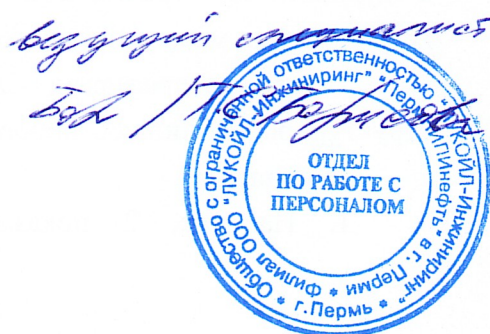 ведущий специалист
Общество с ограниченной ответственностью "ЛУКОЙЛ-Инжиниринг"
* г.Пермь *
Филиал ООО "ЛУКОЙЛ-Инжиниринг" "ПермНИПИнефть" в г. Перми *
ОТДЕЛ
ПО РАБОТЕ С
ПЕРСОНАЛОМ